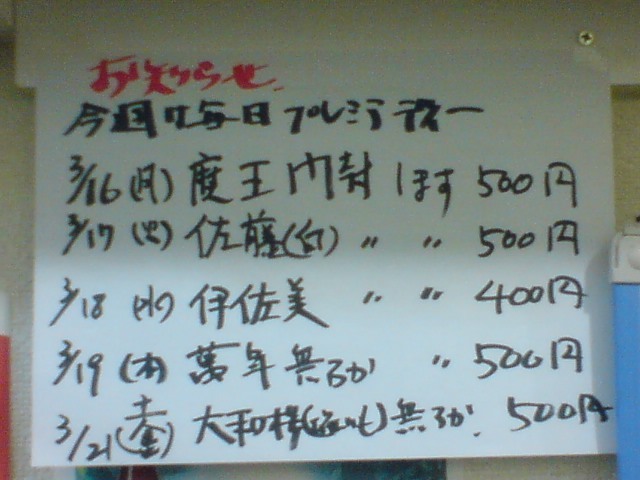 お知らせ
今週は毎日プレミアデー
3/16(月) 魔王 開封します 500円
3/17(火) 佐藤(白) 〃 〃 500円
3/18(水) 伊佐美 〃 〃 400円
3/19(木) 萬年 無るか 〃 500円
3/21(土金) 大和桜( いも) 無るか. 500円